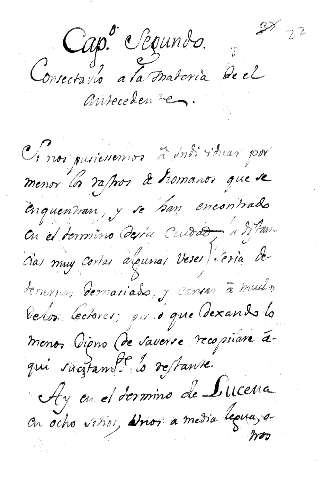 22
Cap.º Segundo.
Consectario a la materia de el
Antecedente.
Si nos pusiessemos â individuar por
menor los rastros de Romanos que se
enquentran, y se han encontrado
en el termino desta Ciudad â distan-
cias muy cortas algunas veses, seria de-
demasiado, y cansar â
lectores; por lo que dexando lo
menos digno de saverse recopilare â-
qui sucintam.te lo restante.
Ay en el termino de Lucena
en ocho sitios, unos a media legua, o-
tros